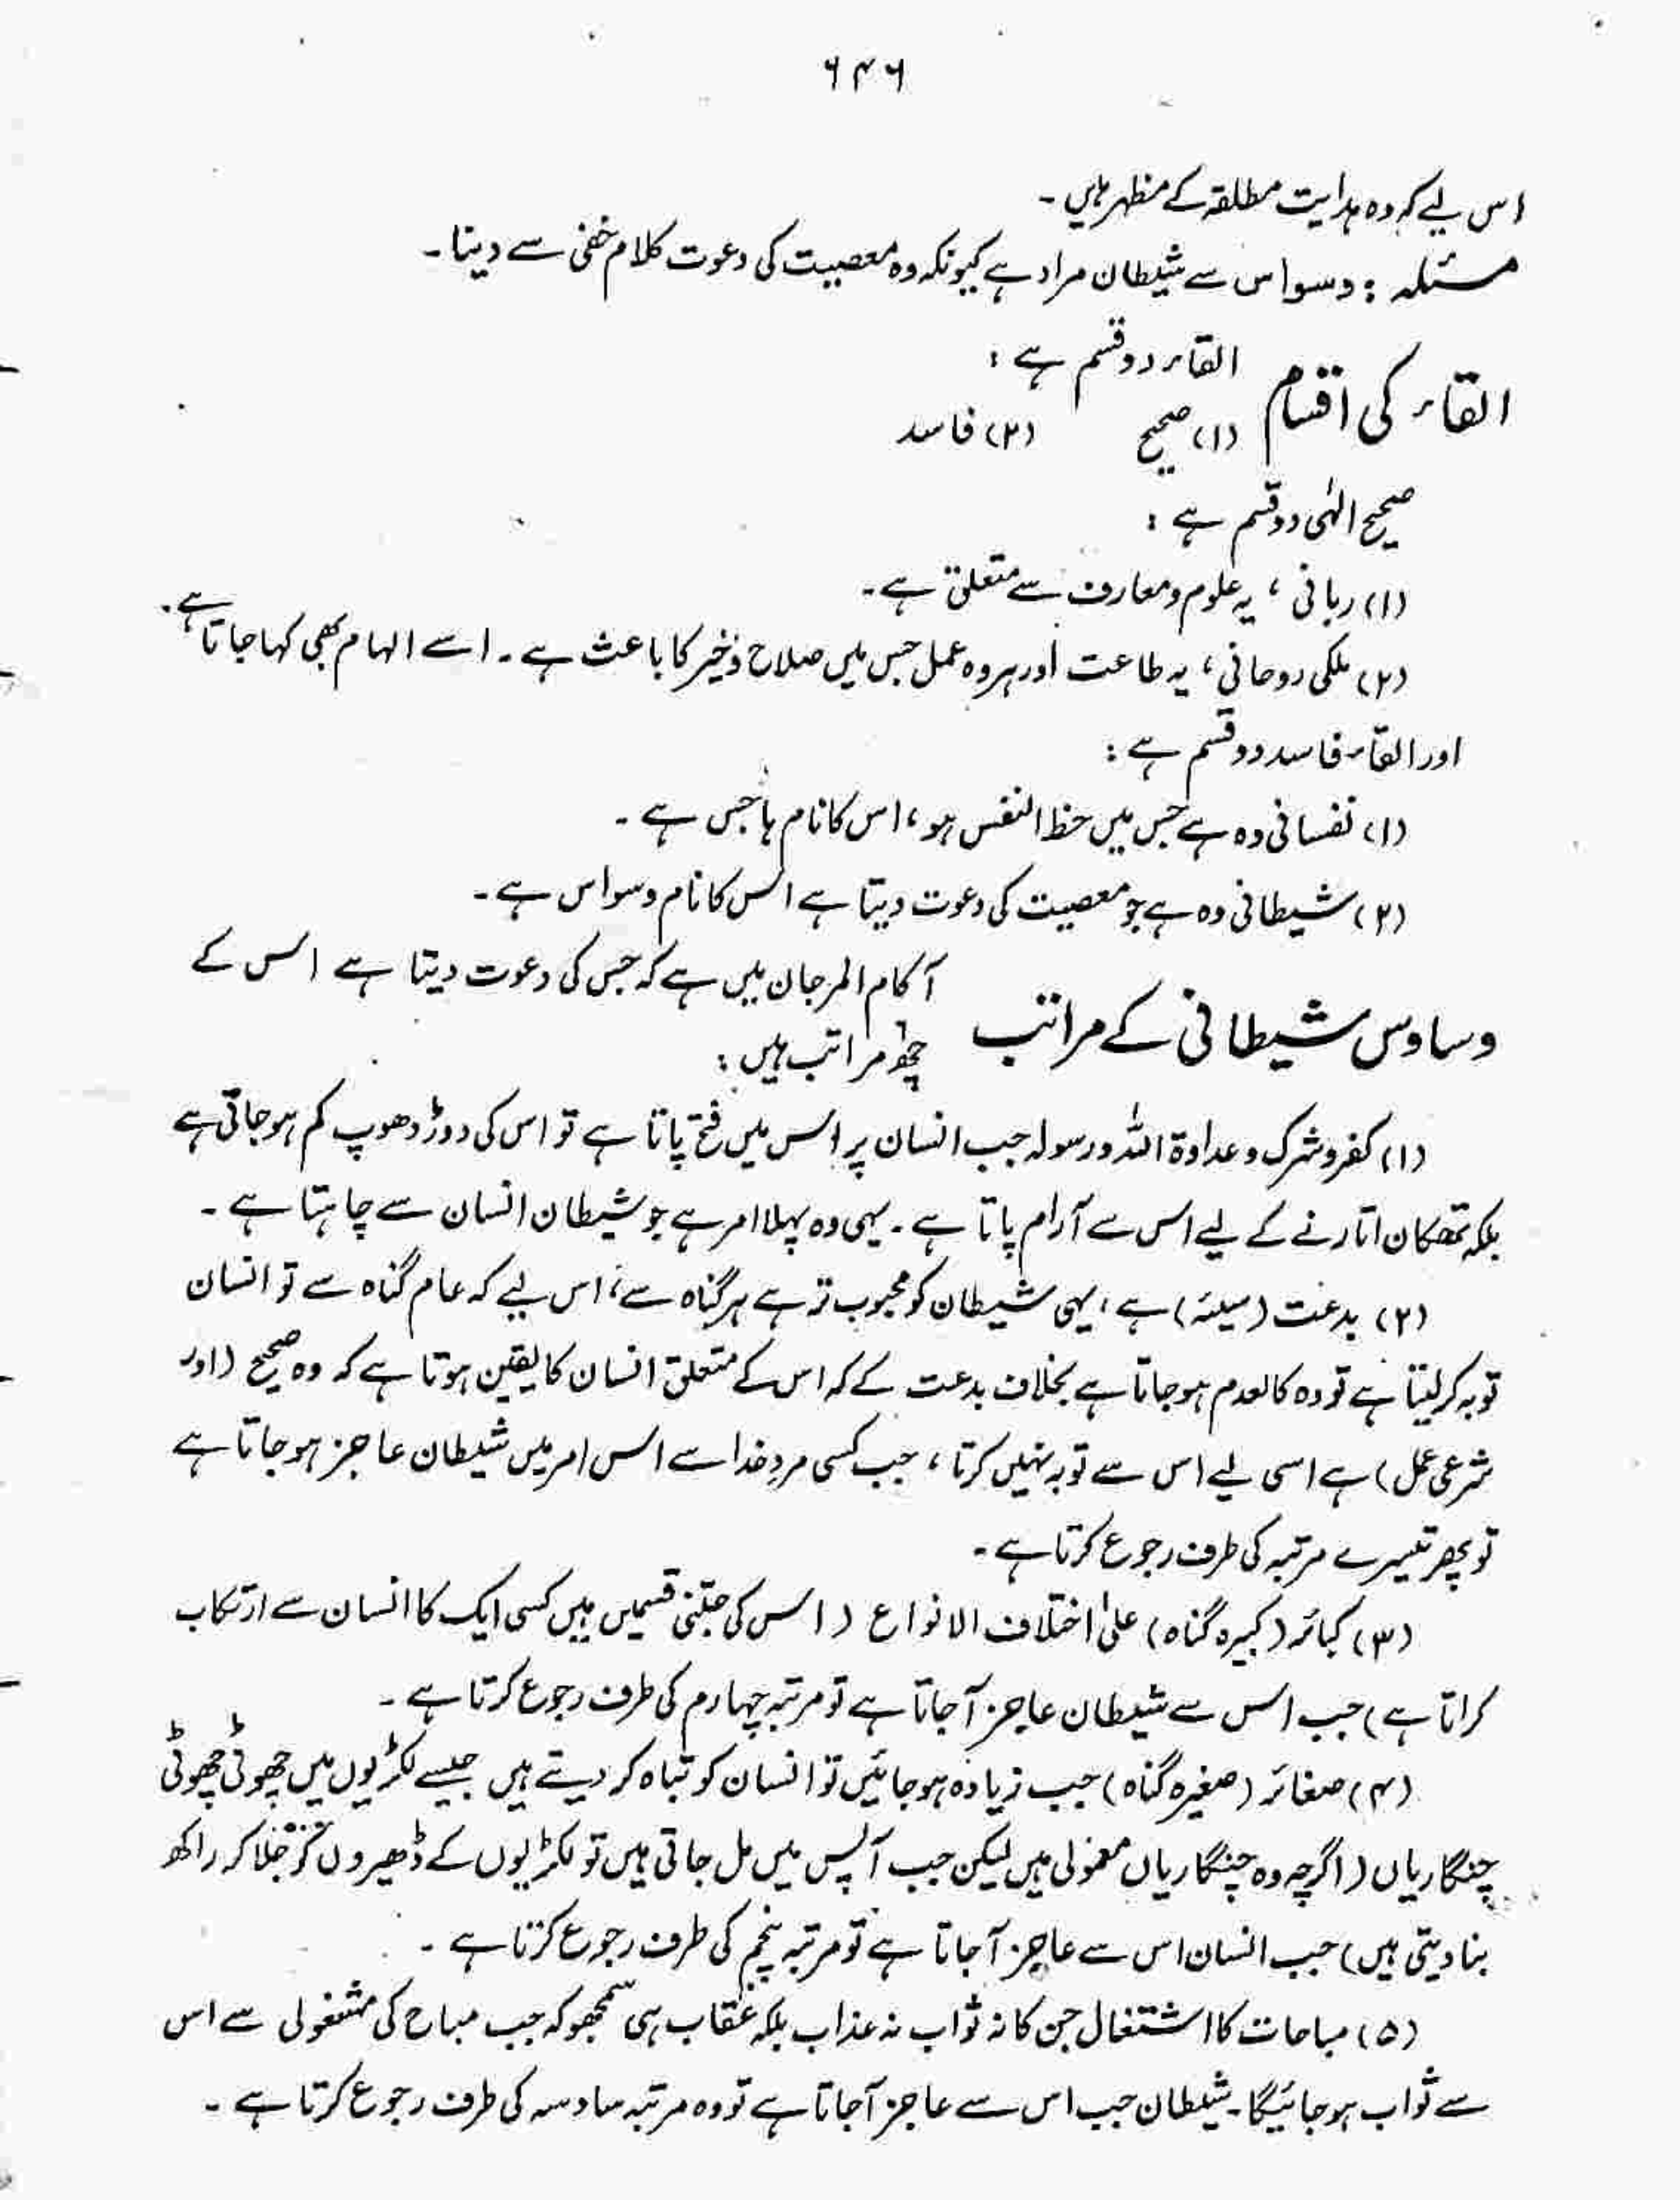 ۶۴۶
اس لیے کہ وہ ہدایت مطلقہ کے مظہر ہیں ۔
مسئلہ : وسواس سے شیطان مراد ہے کیونکہ وہ معصیت کی دعوت کلام خفی سے دیتا ۔
القاء کی اقسام
القاء دو قسم ہے :
(۱) صحیح (۲) فاسد
صحیح الٰہی دو قسم ہے :
(۱) ربانی ، یہ علوم و معارف سے متعلق ہے ۔
(۲) ملکی روحانی ، یہ طاعت اور ہر وہ عمل جس میں صلاح و خیر کا باعث ہے ۔ اسے الہام بھی کہا جاتا ہے ۔
اور القاء فاسد دو قسم ہے :
(۱) نفسانی وہ ہے جس میں حظ النفس ہو ، اس کا نام ہاجس ہے ۔
(۲) شیطانی وہ ہے جو معصیت کی دعوت دیتا ہے اس کا نام وسواس ہے ۔
وساوس شیطانی کے مراتب
آکام المرجان میں ہے کہ جس کی دعوت دیتا ہے اس کے
چھ مراتب ہیں :
(۱) کفر و شرک و عداوۃ اللہ و رسولہ جب انسان پر اس میں فتح پاتا ہے تو اس کی دوڑ دھوپ کم ہو جاتی ہے
بلکہ تھکان اتارنے کے لیے اس سے آرام پاتا ہے ۔ یہی وہ پہلا امر ہے جو شیطان انسان سے چاہتا ہے ۔
(۲) بدعت (سیئہ) ہے ، یہی شیطان کو محبوب تر ہے ہر گناہ سے ، اس لیے کہ عام گناہ سے تو انسان
توبہ کر لیتا ہے تو وہ کالعدم ہو جاتا ہے بخلاف بدعت کے کہ اس کے متعلق انسان کا یقین ہوتا ہے کہ وہ صحیح (اور
شرعی عمل) ہے اسی لیے اس سے توبہ نہیں کرتا ، جب کسی مردِ خدا سے اس امر میں شیطان عاجز ہو جاتا ہے
تو پھر تیسرے مرتبہ کی طرف رجوع کرتا ہے ۔
(۳) کبائر (کبیرہ گناہ) علیٰ اختلاف الانواع (اس کی جتنی قسمیں ہیں کسی ایک کا انسان سے ارتکاب
کراتا ہے) جب اس سے شیطان عاجز آ جاتا ہے تو مرتبہ چہارم کی طرف رجوع کرتا ہے ۔
(۴) صغائر (صغیرہ گناہ) جب زیادہ ہو جائیں تو انسان کو تباہ کر دیتے ہیں جیسے لکڑیوں میں چھوٹی چھوٹی
چنگاریاں (اگرچہ وہ چنگاریاں معمولی ہیں لیکن جب آپس میں مل جاتی ہیں تو لکڑیوں کے ڈھیروں کو جلا کر راکھ
بنا دیتی ہیں) جب انسان اس سے عاجز آ جاتا ہے تو مرتبہ پنجم کی طرف رجوع کرتا ہے ۔
(۵) مباحات کا اشتغال جن کا نہ ثواب نہ عذاب بلکہ عقاب ہی سمجھو کہ جب مباح کی مشغولی سے اس
سے ثواب ہو جائیگا ۔ شیطان جب اس سے عاجز آ جاتا ہے تو وہ مرتبہ سادسہ کی طرف رجوع کرتا ہے ۔